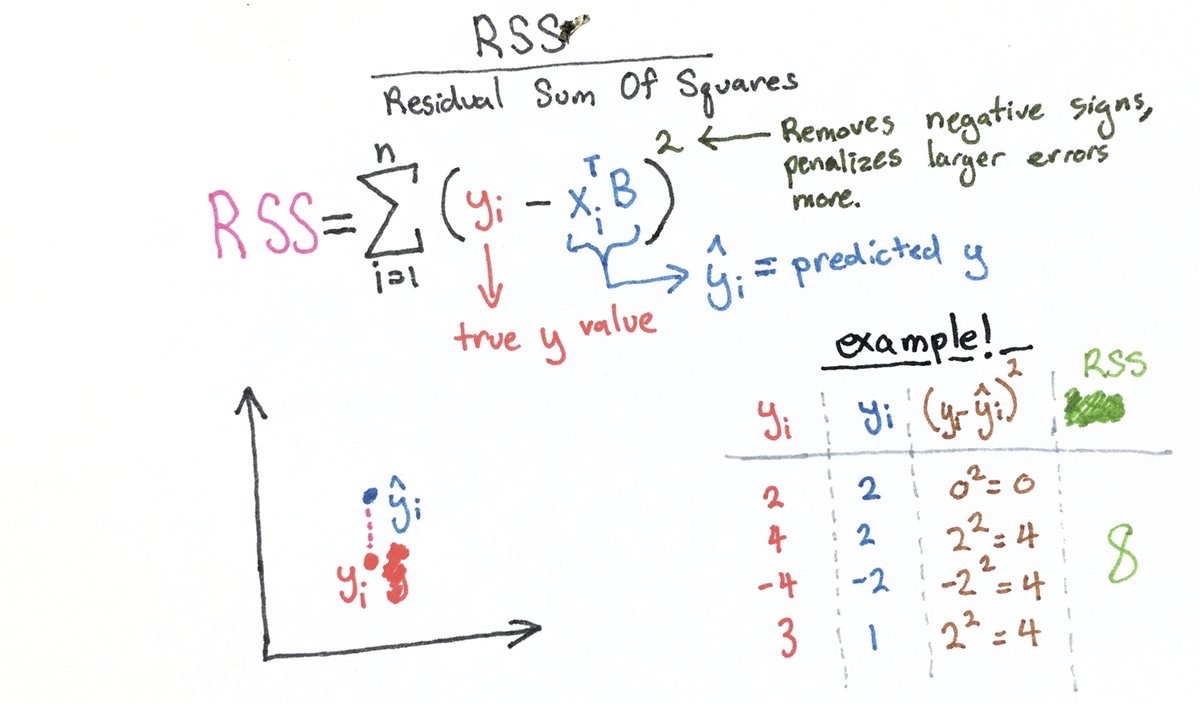 RSS
Residual Sum Of Squares
RSS = n∑i=1 (yi - xiᵀB)² ← Removes negative signs,
penalizes larger errors
more.
ŷi = predicted y
true y value
example!
yi yi (yi-ŷi)² RSS
2 2 0²=0
4 2 2²=4
-4 -2 -2²=4
3 1 2²=4
8
ŷi
yi